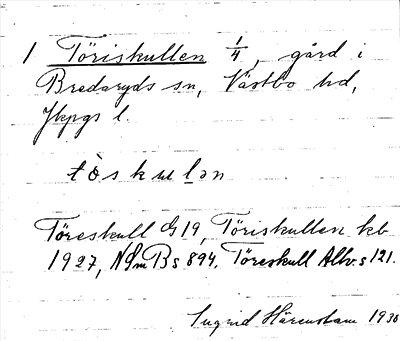 1 Töriskullen 1/4, gård i
Bredaryds sn, Västbo hd,
Jkpgs l.
tòskulən
Töreskull G 19, Töriskullen kb
1927, NSmB s 894. Töreskull Allv. s 121.
Ingrid Härenstam 1936